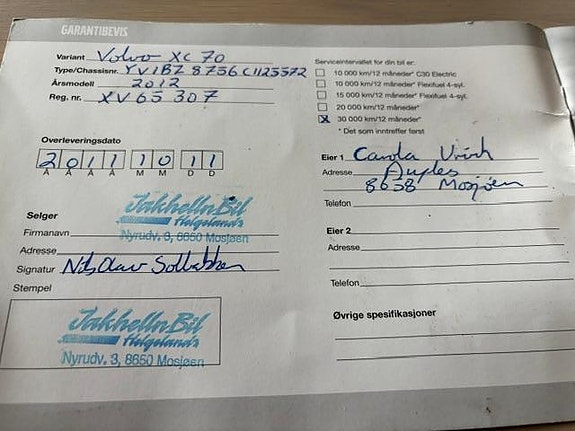 GARANTIBEVIS
Variant Volvo XC 70
Type/Chassisnr. YV1BZ8756C1123372
Årsmodell 2012
Reg. nr. XV 65 307
Overleveringsdato
2 0 1 1 1 0 1 1
Å Å Å Å M M D D
Selger
Firmanavn
Jakhelln Bil
Helgeland
Nyrudv. 3, 8650 Mosjøen
Adresse
Signatur Nils Olav
Stempel
Jakhelln Bil
Helgeland
Nyrudv. 3, 8650 Mosjøen
Serviceintervallet for din bil er:
10 000 km/12 måneder* C30 Electric
10 000 km/12 måneder* Flexifuel 4-syl.
15 000 km/12 måneder* Flexifuel 4-syl.
20 000 km/12 måneder*
X 30 000 km/12 måneder*
* Det som inntreffer først
Eier 1 Carola
Adresse
8658 Mosjøen
Telefon
Eier 2
Adresse
Telefon
Øvrige spesifikasjoner